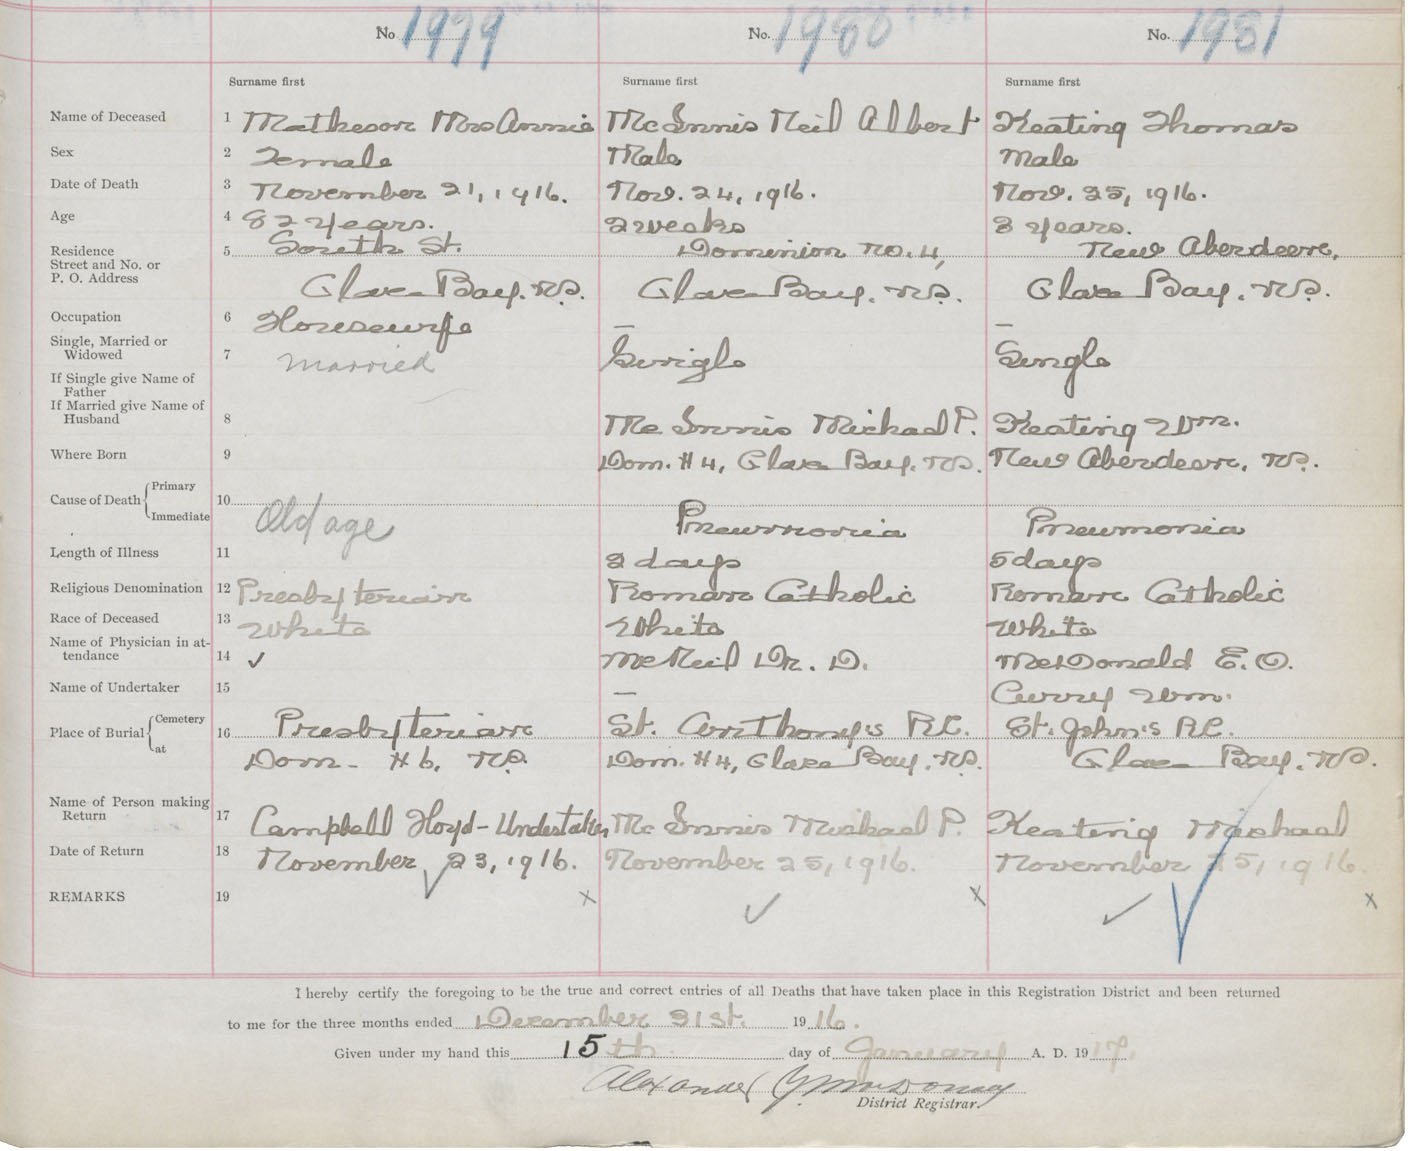 No. 1979 No. 1980 No. 1981
Surname first Surname first Surname first
Name of Deceased 1 Matheson Mrs Annie McInnis Neil Albert Keating Thomas
Sex 2 Female Male Male
Date of Death 3 November 21, 1916. Nov. 24, 1916. Nov. 25, 1916.
Age 4 82 years. 2 weeks 3 years.
Residence 5 South St. Dominion No. 4, New Aberdeen,
Street and No. or
P. O. Address Glace Bay. N.S. Glace Bay. N.S. Glace Bay. N.S.
Occupation 6 Housewife — —
Single, Married or
Widowed 7 Married Single Single
If Single give Name of
Father
If Married give Name of
Husband 8 McInnis Michael P. Keating Wm.
Where Born 9 Dom. #4, Glace Bay. N.S. New Aberdeen, N.S.
Cause of Death { Primary
10
Immediate Old age Pneumonia Pneumonia
Length of Illness 11 2 days 5 days
Religious Denomination 12 Presbyterian Roman Catholic Roman Catholic
Race of Deceased 13 White White White
Name of Physician in at-
tendance 14 ✓ McNeil Dr. D. McDonald E. O.
Name of Undertaker 15 — Curry Wm.
Place of Burial { Cemetery 16 Presbyterian St. Anthony's R.C. St. John's R.C.
at Dom - #6, N.S. Dom. #4, Glace Bay. N.S. Glace Bay. N.S.
Name of Person making
Return 17 Campbell Floyd - Undertaker McInnis Michael P. Keating Michael
Date of Return 18 November 23, 1916. November 25, 1916. November 25, 1916.
REMARKS 19 ✓ x ✓ x ✓ x
I hereby certify the foregoing to be the true and correct entries of all Deaths that have taken place in this Registration District and been returned
to me for the three months ended December 31st. 1916.
Given under my hand this 15th day of January A. D. 1917.
Alexander
District Registrar.